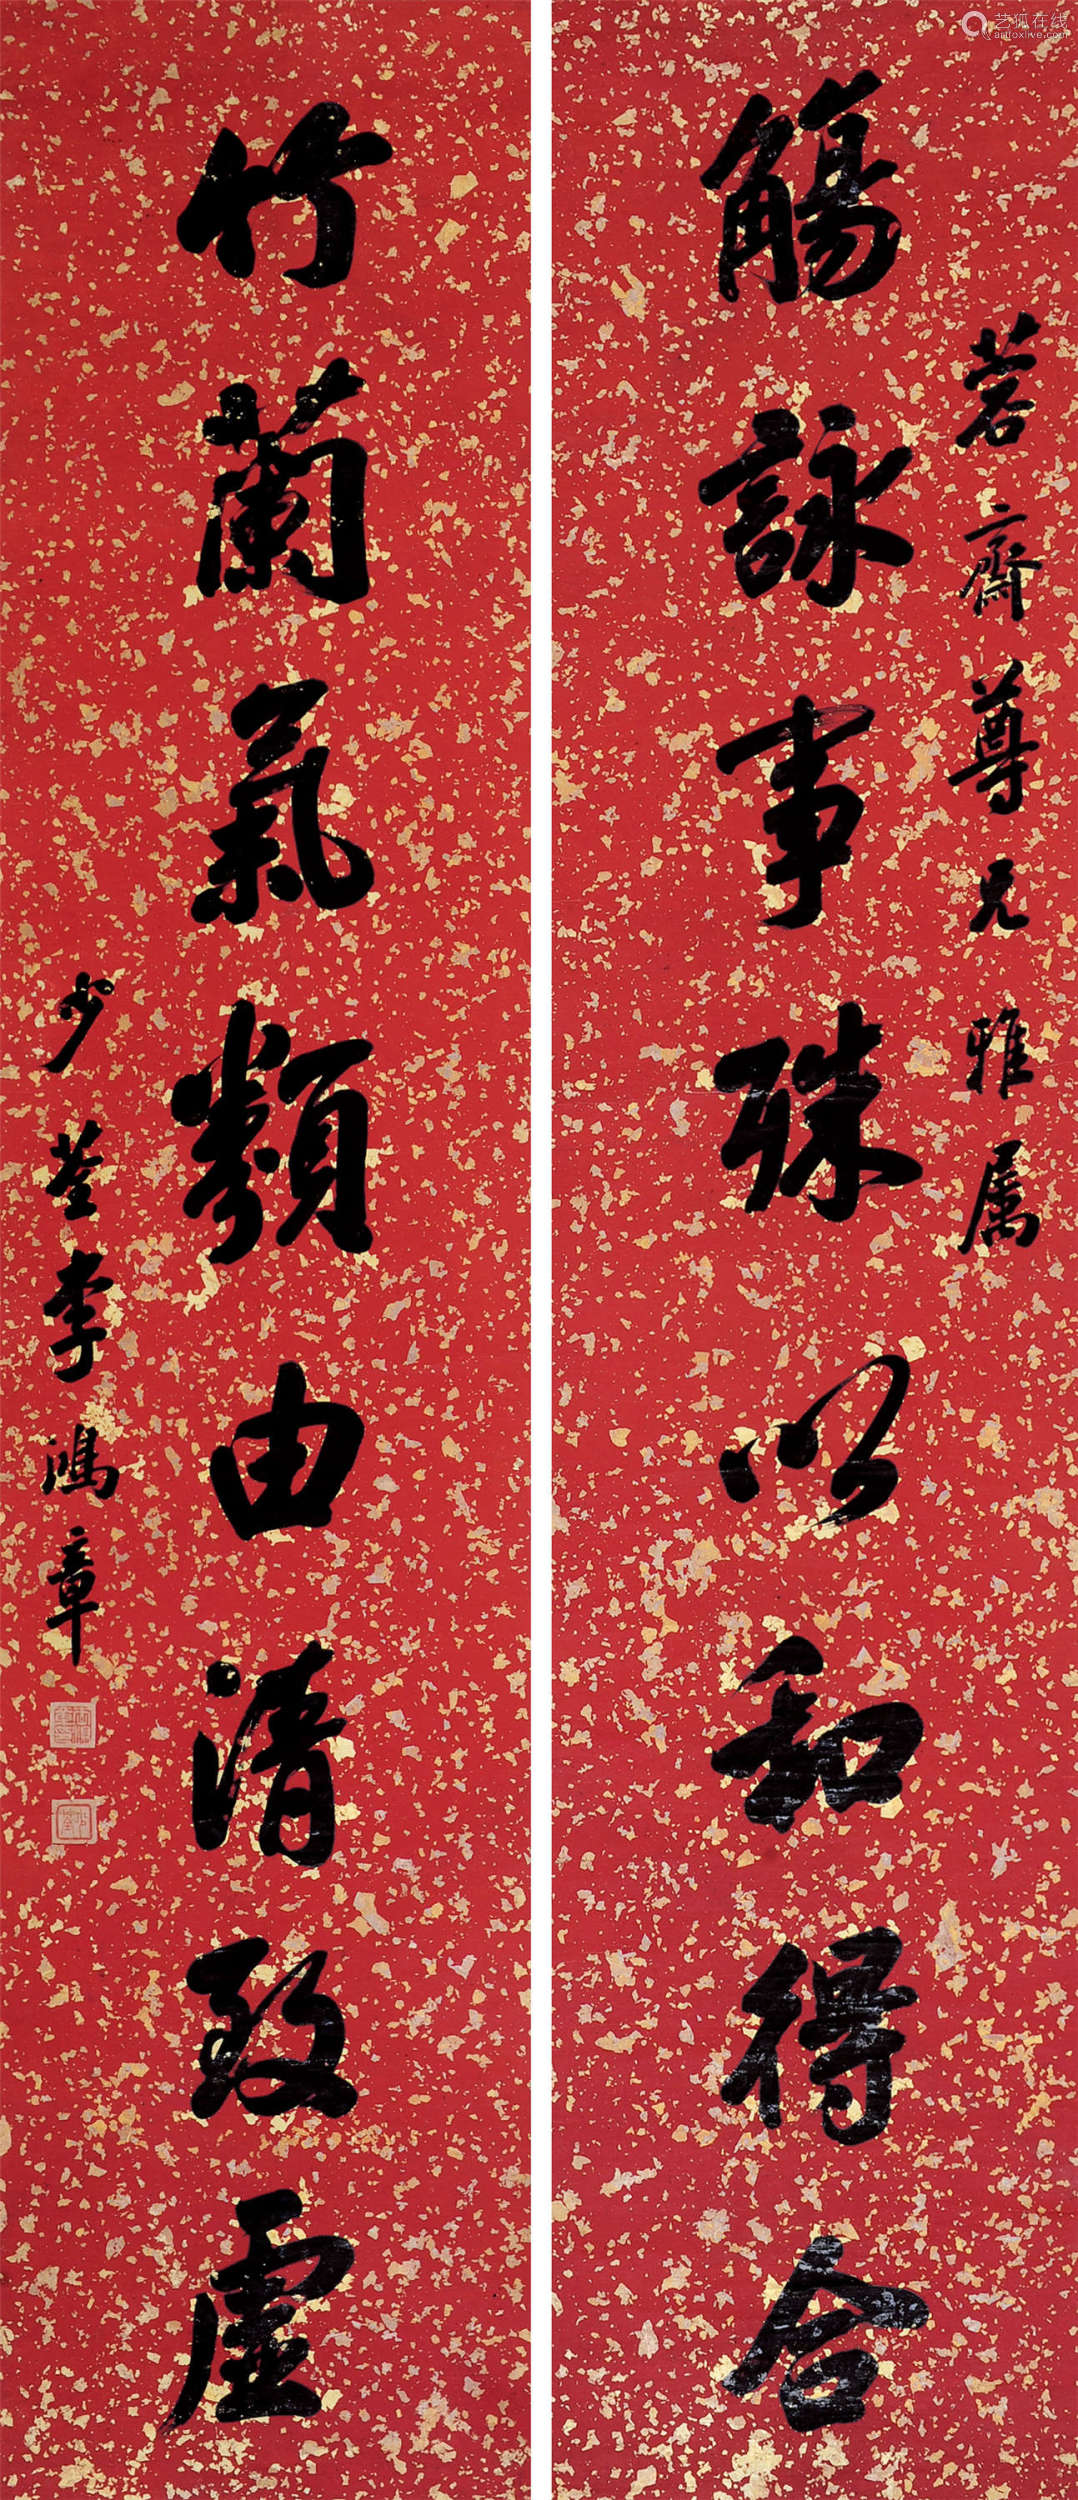 觴詠事殊以和得合
若齋尊兄雅属
竹蘭氣類由清致虛
少荃李鴻章
艺狐在线
artfoxlive.com